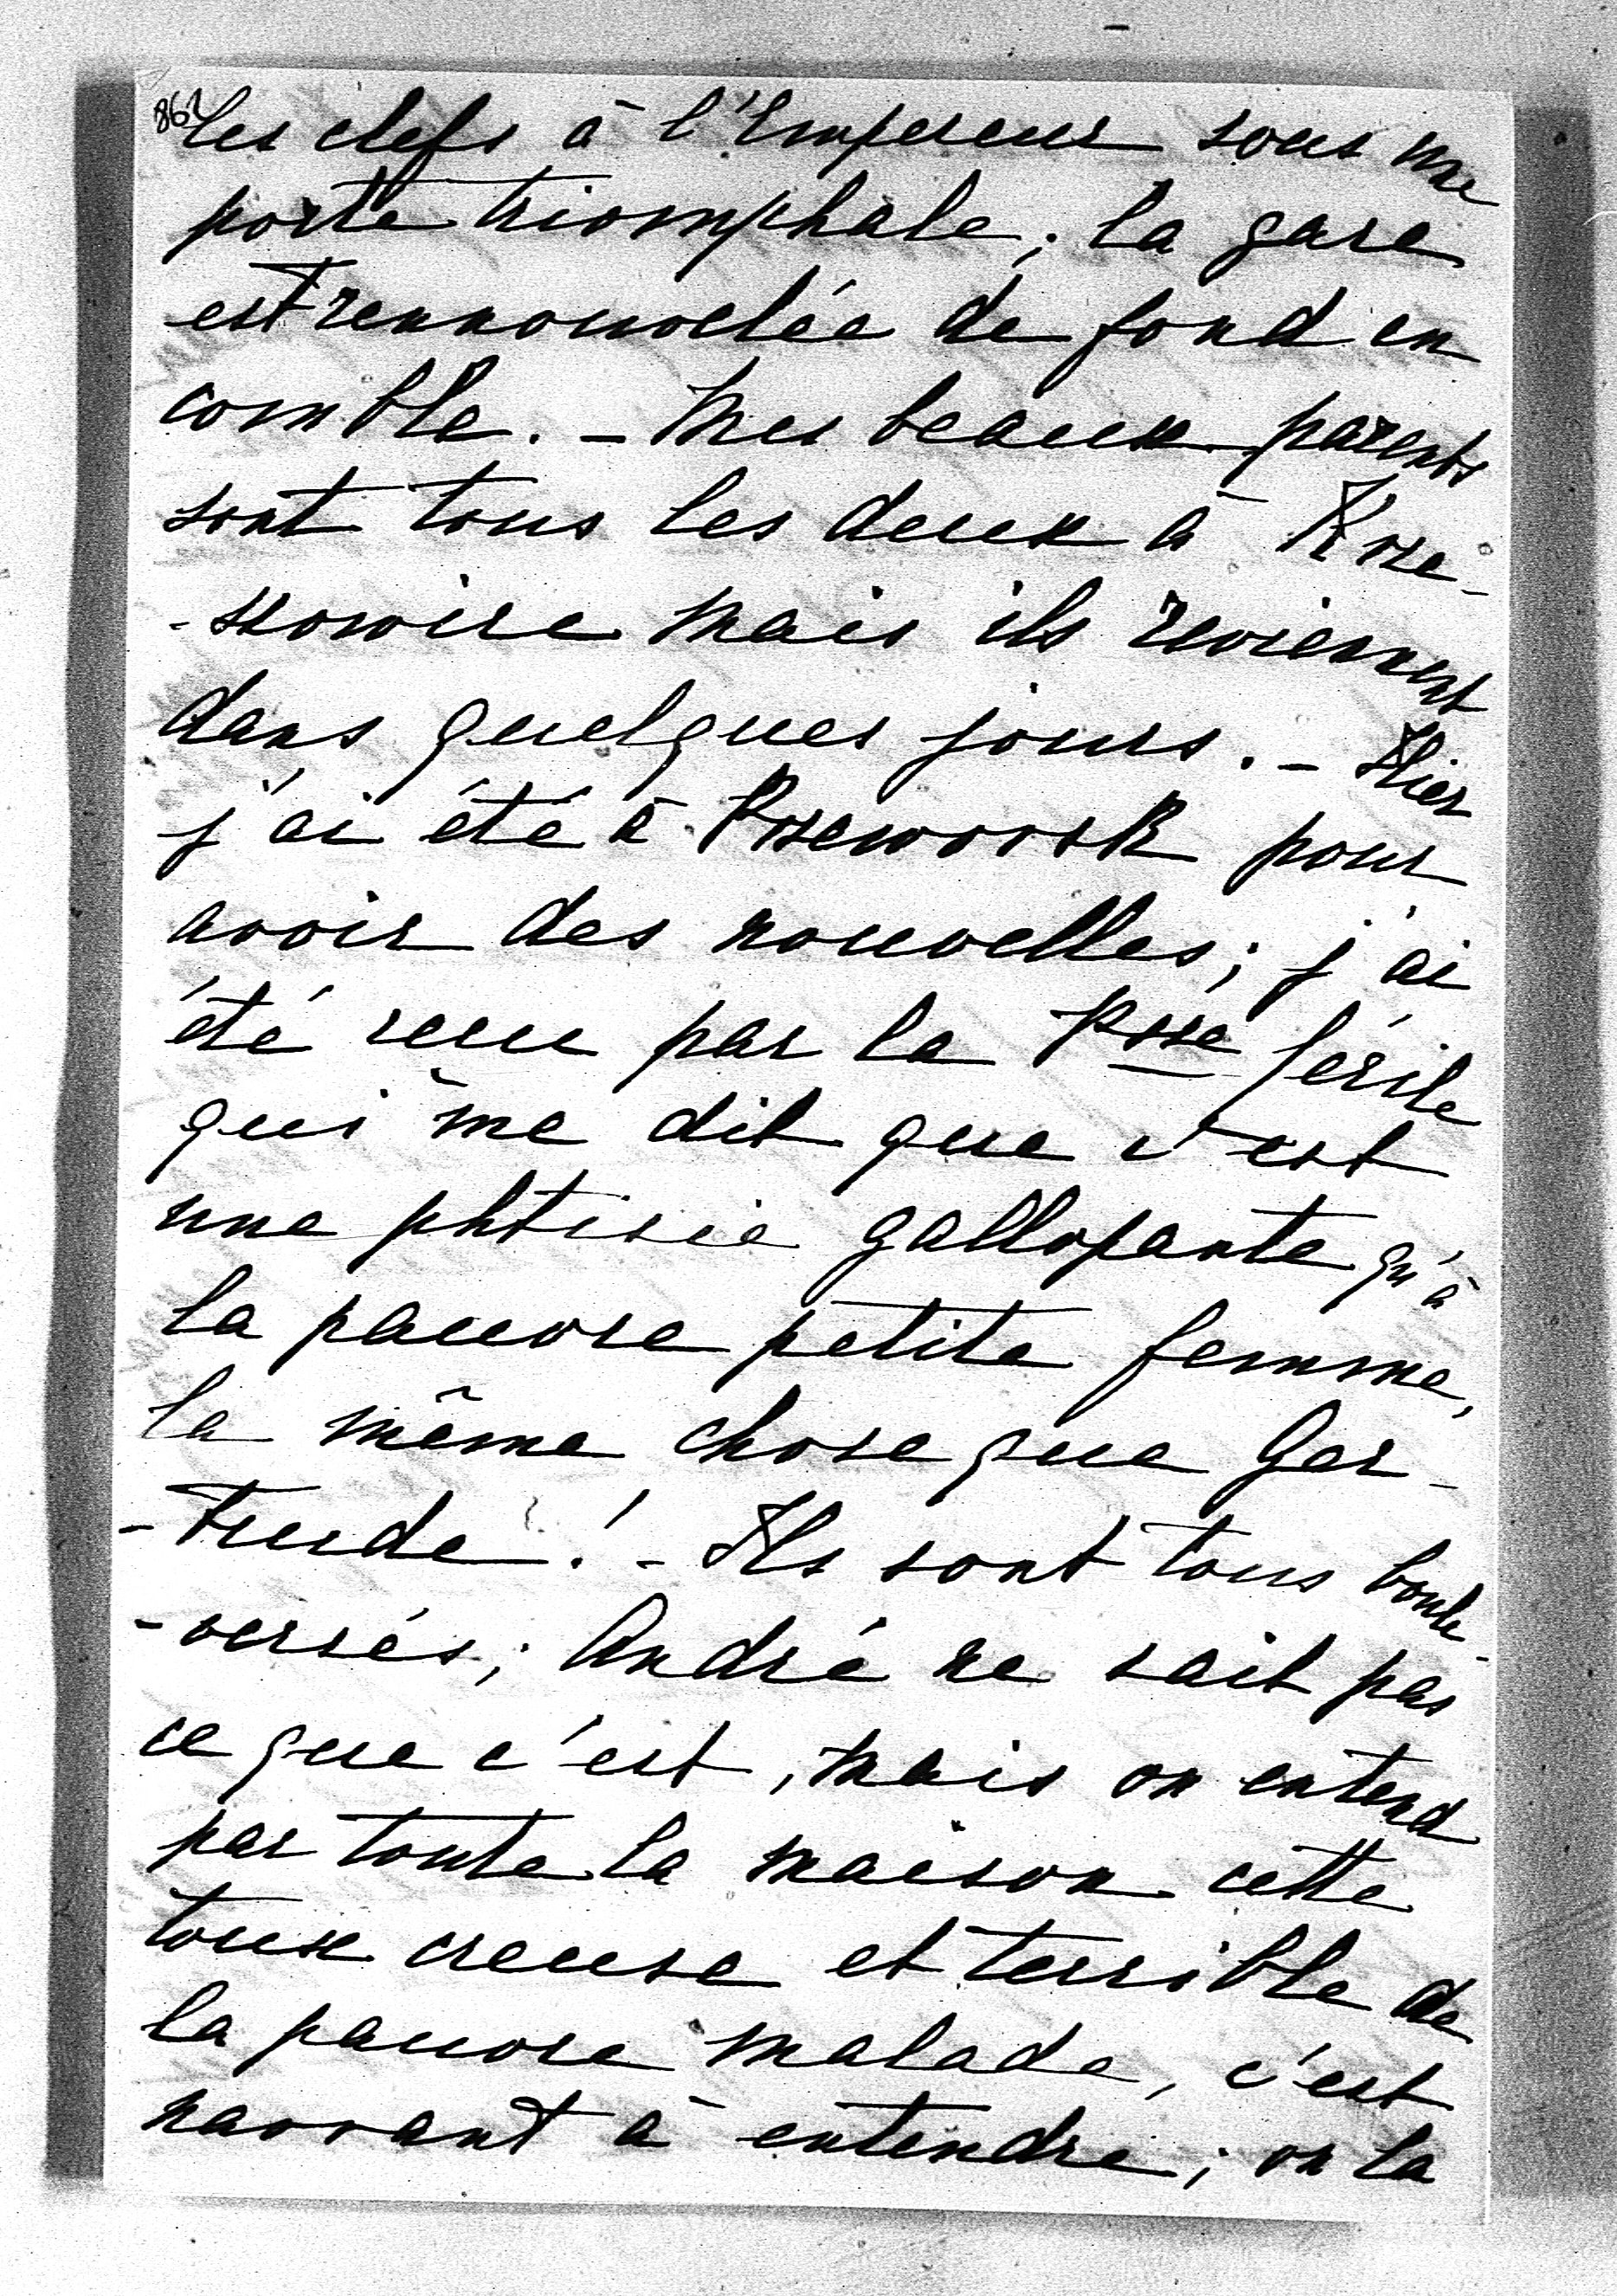 862
les clefs à l'Empereur sous une
porte triomphale; la gare
est rennouvelée de fond en
comble. – Mes beaux-parents
sont tous les deux à Krze-
-szowice mais ils reviennent
dans quelques jours. – Hier
j'ai été à Przeworsk pour
avoir des nouvelles; j'ai
été recu par la Psse Cécile
qui me dit que c'est
une phtisie gallopante qu'à
la pauvre petite femme,
la même chose que Ger-
-trude! – Ils sont tous boule-
-versés; André ne sait pas
ce que c'est, mais on entend
par toute la maison cette
toux creuse et terrible de
la pauvre malade, c'est
navrant à entendre; on la